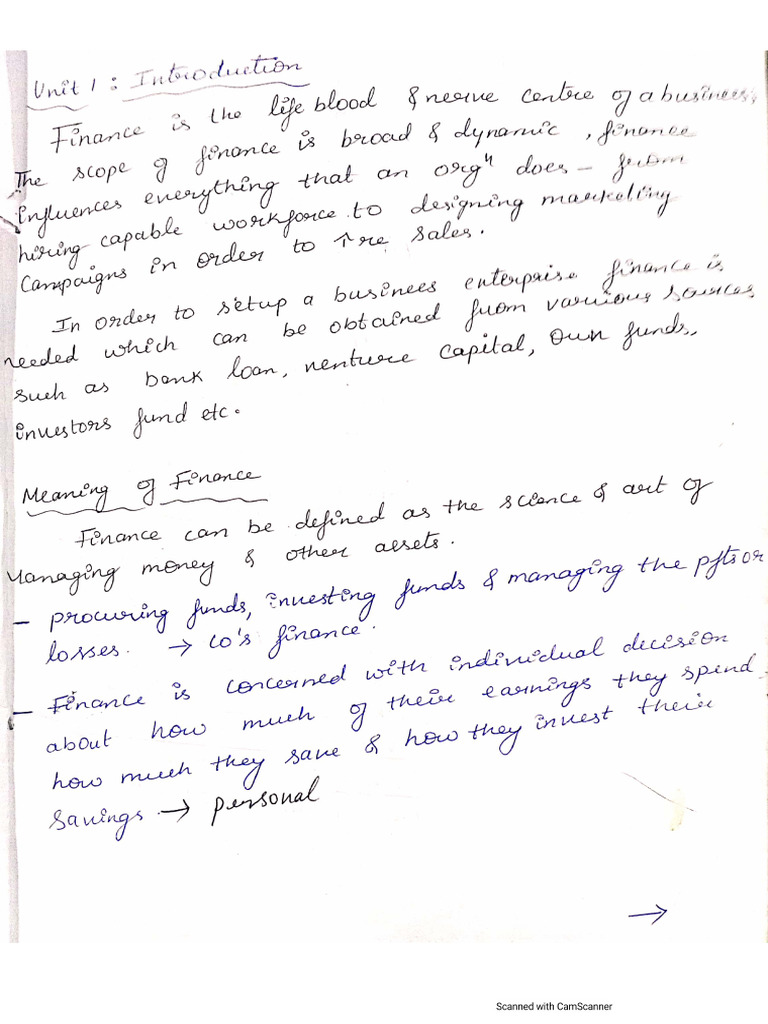 Unit 1 : Introduction
Finance is the life blood & nerve centre of a business,
The scope of finance is broad & dynamic, finance
influences everything that an orgn does - from
hiring capable workforce to designing marketing
campaigns in order to ↑re sales.
In order to setup a business enterprise finance is
needed which can be obtained from various sources
such as bank loan, venture capital, own funds,
investors fund etc.
Meaning of Finance
Finance can be defined as the science & art of
Managing money & other assets.
- procuring funds, investing funds & managing the pfts or
losses. → co's finance.
- Finance is concerned with individual decision
about how much of their earnings they spend
how much they save & how they invest their
savings → personal
→
Scanned with CamScanner